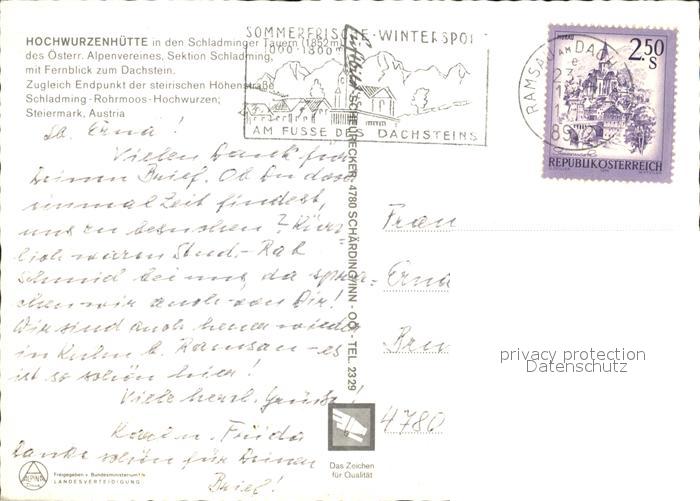 HOCHWURZENHÜTTE in den Schladminger Tauern (1852m)
des Österr. Alpenvereines, Sektion Schladming,
mit Fernblick zum Dachstein.
Zugleich Endpunkt der steirischen Höhenstraße
Schladming-Rohrmoos-Hochwurzen;
Steiermark, Austria
SOMMERFRISCHE-WINTERSPO
AM FUSSE DES DACHSTEINS
RAMSAU AM DA
2.50
S
REPUBLIK ÖSTERREICH
Lb. Erna!
Vielen Dank für
Deinen Brief. Ob Du doch
einmal Zeit findest,
uns zu besuchen? Kürz-
lich waren Stud.-Rat
Schmid bei uns, da spra-
chen wir auch von Dir!
Wir sind auch heuer wieder
in Kulm b. Ramsau - es
ist so schön hier!
Viele herzl. Grüße!
Karl u.
Danke schön für Deinen
Brief!
Luftbild SCHEURECKER, 4780 SCHÄRDING/INN - OÖ - TEL. 2329
Frau
Erna
4780
privacy protection
Datenschutz
Das Zeichen
für Qualität
ALPINA
Freigegeben v. Bundesministerium f.
LANDESVERTEIDIGUNG